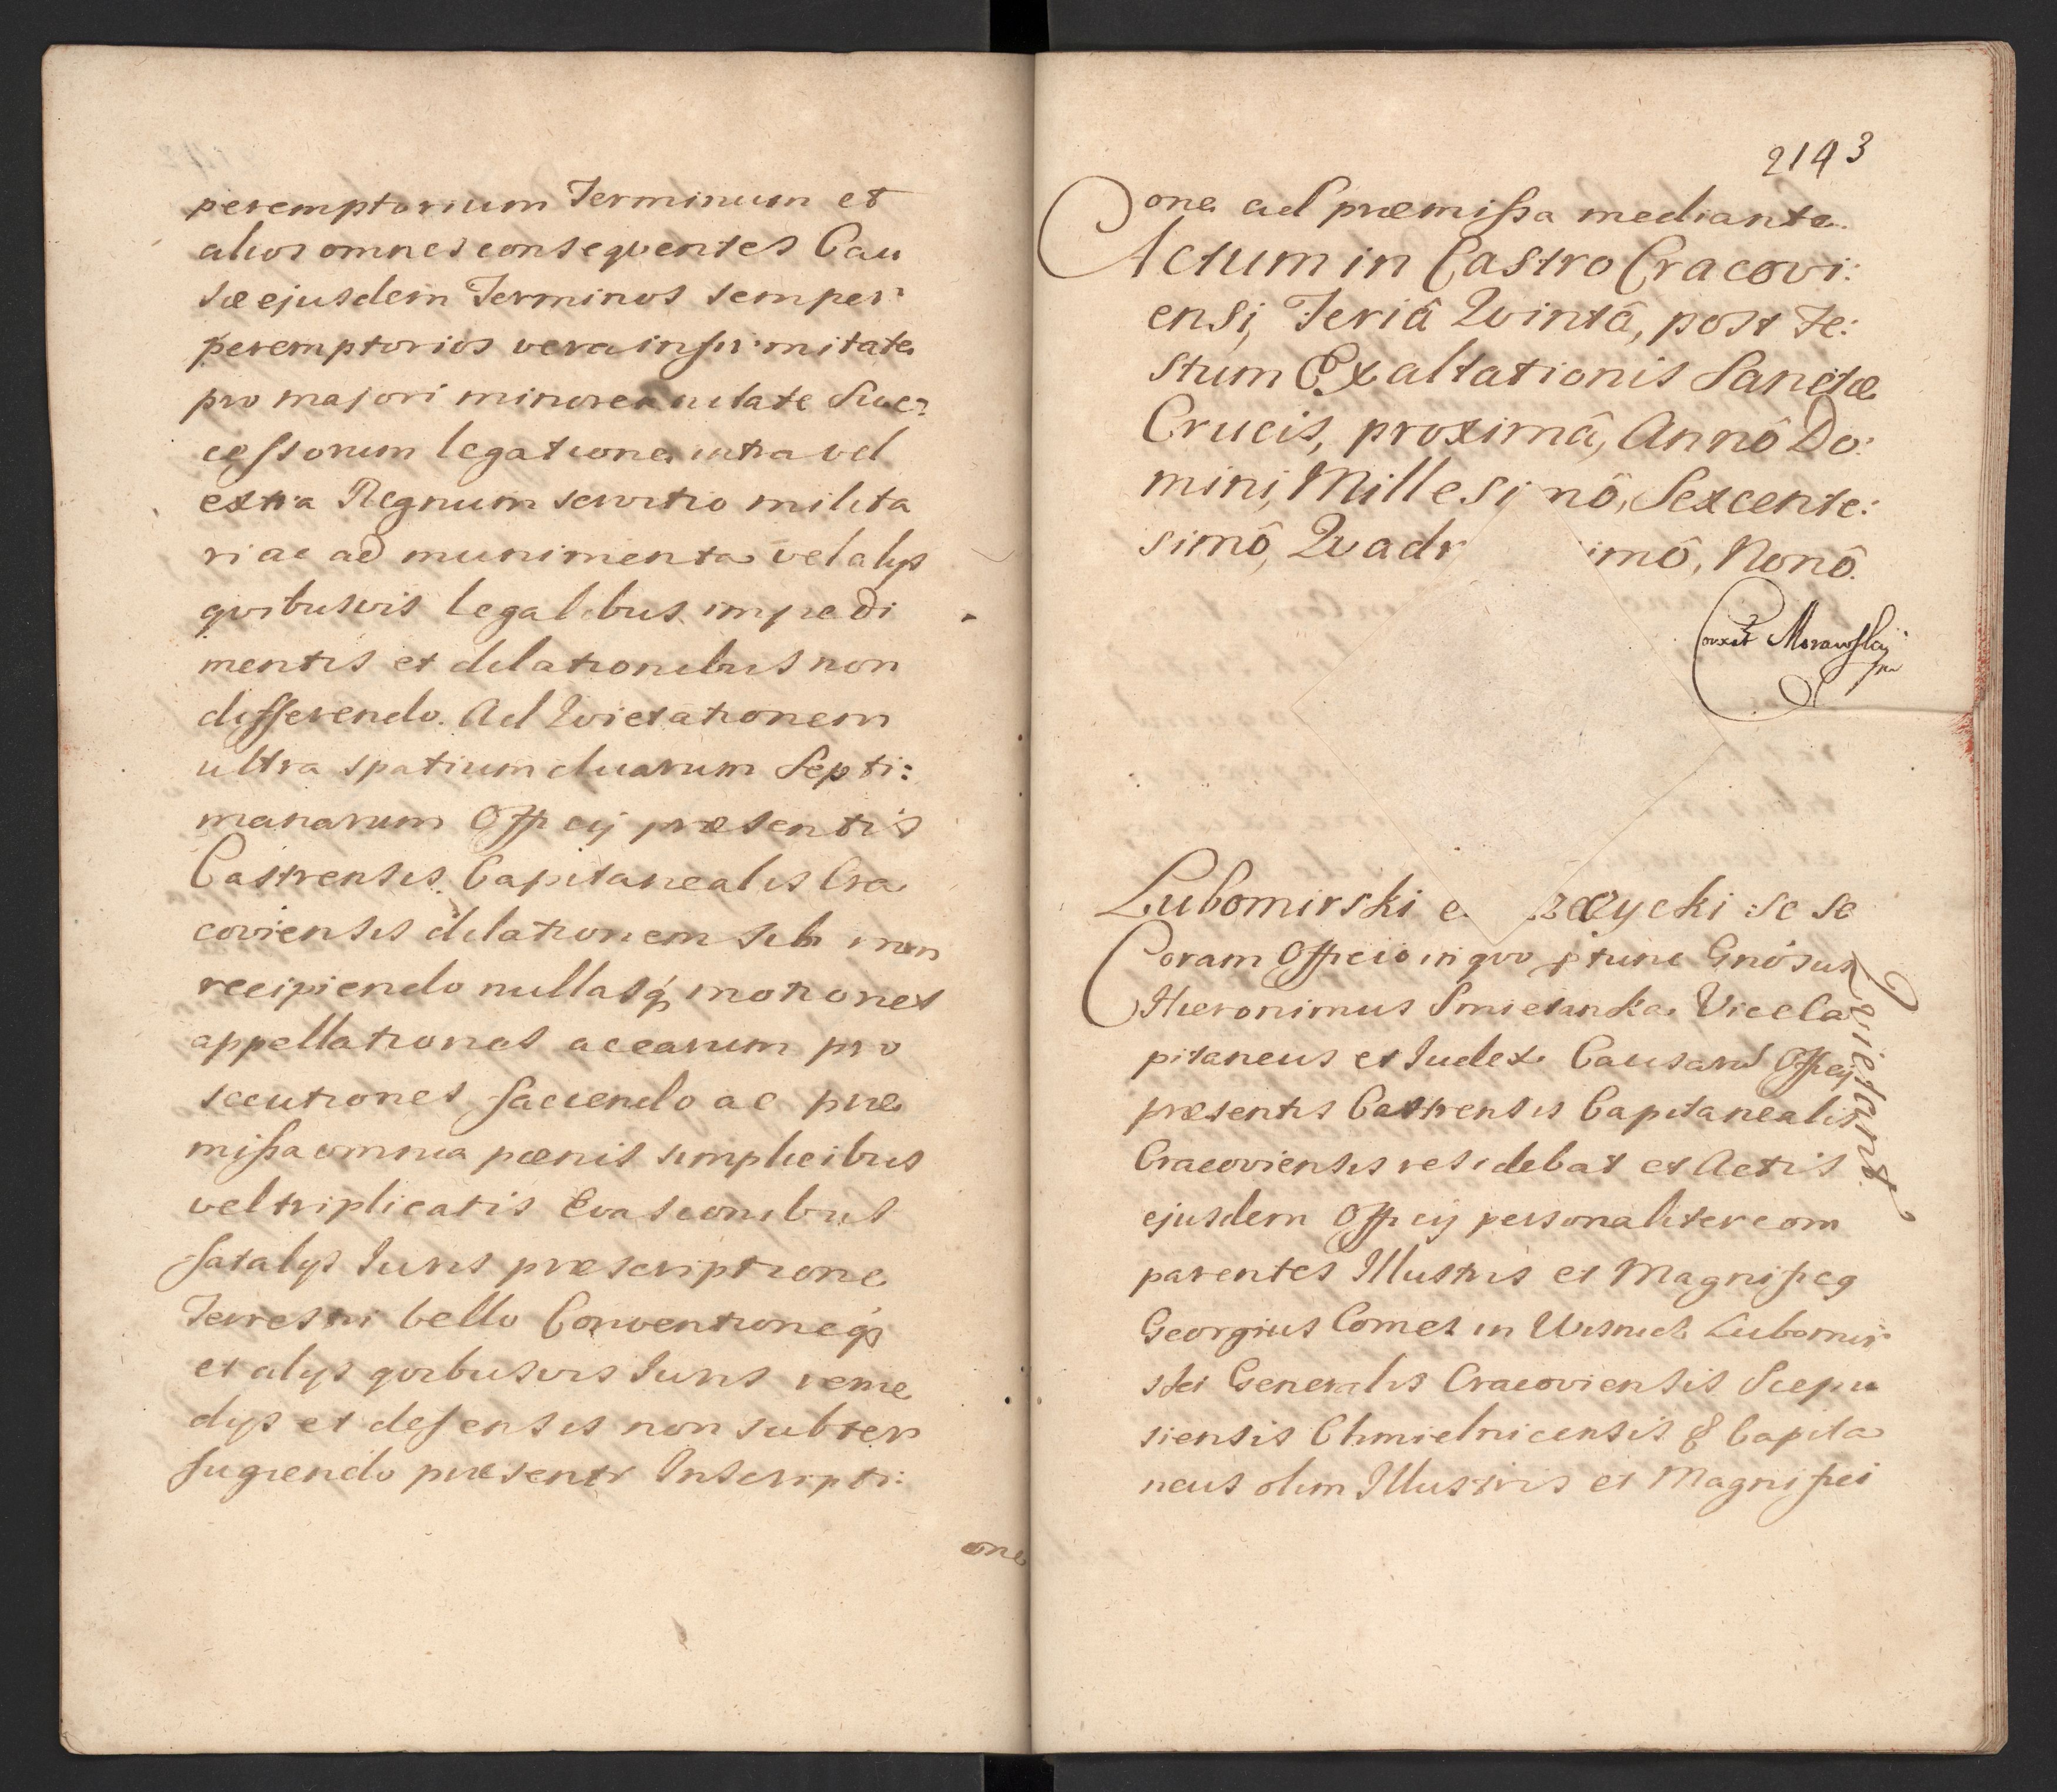 peremptorium Terminum et
alios omnes consequentes Cau
sæ ejusdem Terminos semper
peremptorios vera infirmitate
pro majori minore ætate Suc:
cessorum legatione intra vel
extra Regnum servitio milita
ri ac ad munimenta vel alijs
quibusvis legalibus impedi
mentis et dilationibus non
differendo. Ad Quietationem
ultra spatium duarum Septi:
manarum Officij præsentis
Castrensis Capitanealis Cra
coviensis dilationem sibi non
recipiendo nullasq motiones
appellationes ac earum pro
secutiones faciendo ac præ
missa omnia pænis simplicibus
vel triplicatis Evasionibus
fatalijs Iuris præscriptione
Terrestri bello Conventioneq
et alijs quibusvis Iuris reme
dijs et defensis non subter
fugiendo præsenti Inscripti:
one
2143
one ad præmissa mediante.
Actum in Castro Cracovi:
ensi, Feriâ Quintâ, post Fe:
stum Exaltationis Sanctæ
Crucis, proximâ, Annô Do:
mini, Millesi mô, Sexcente:
simô, Quadr imô, Nonô.
Conxit Morawsky
mp
Lubomirski e zæycki se se
Quietant
Coram Officio in quo ptunc Gnosus
Hieronimus Smietanka Viceca
pitaneus et Iudex Causarū Officij
præsentis Castrensis Capitanealis
Cracoviensis residebat et Actis
ejusdem Officij personaliter com
parentes Illustris et Magnificq
Georgius Comes in Wisnicz Lubomir
ski Generalis Cracoviensis Scepu
siensis Chmielnicensis & Capita
neus olim Illustris et Magnifici